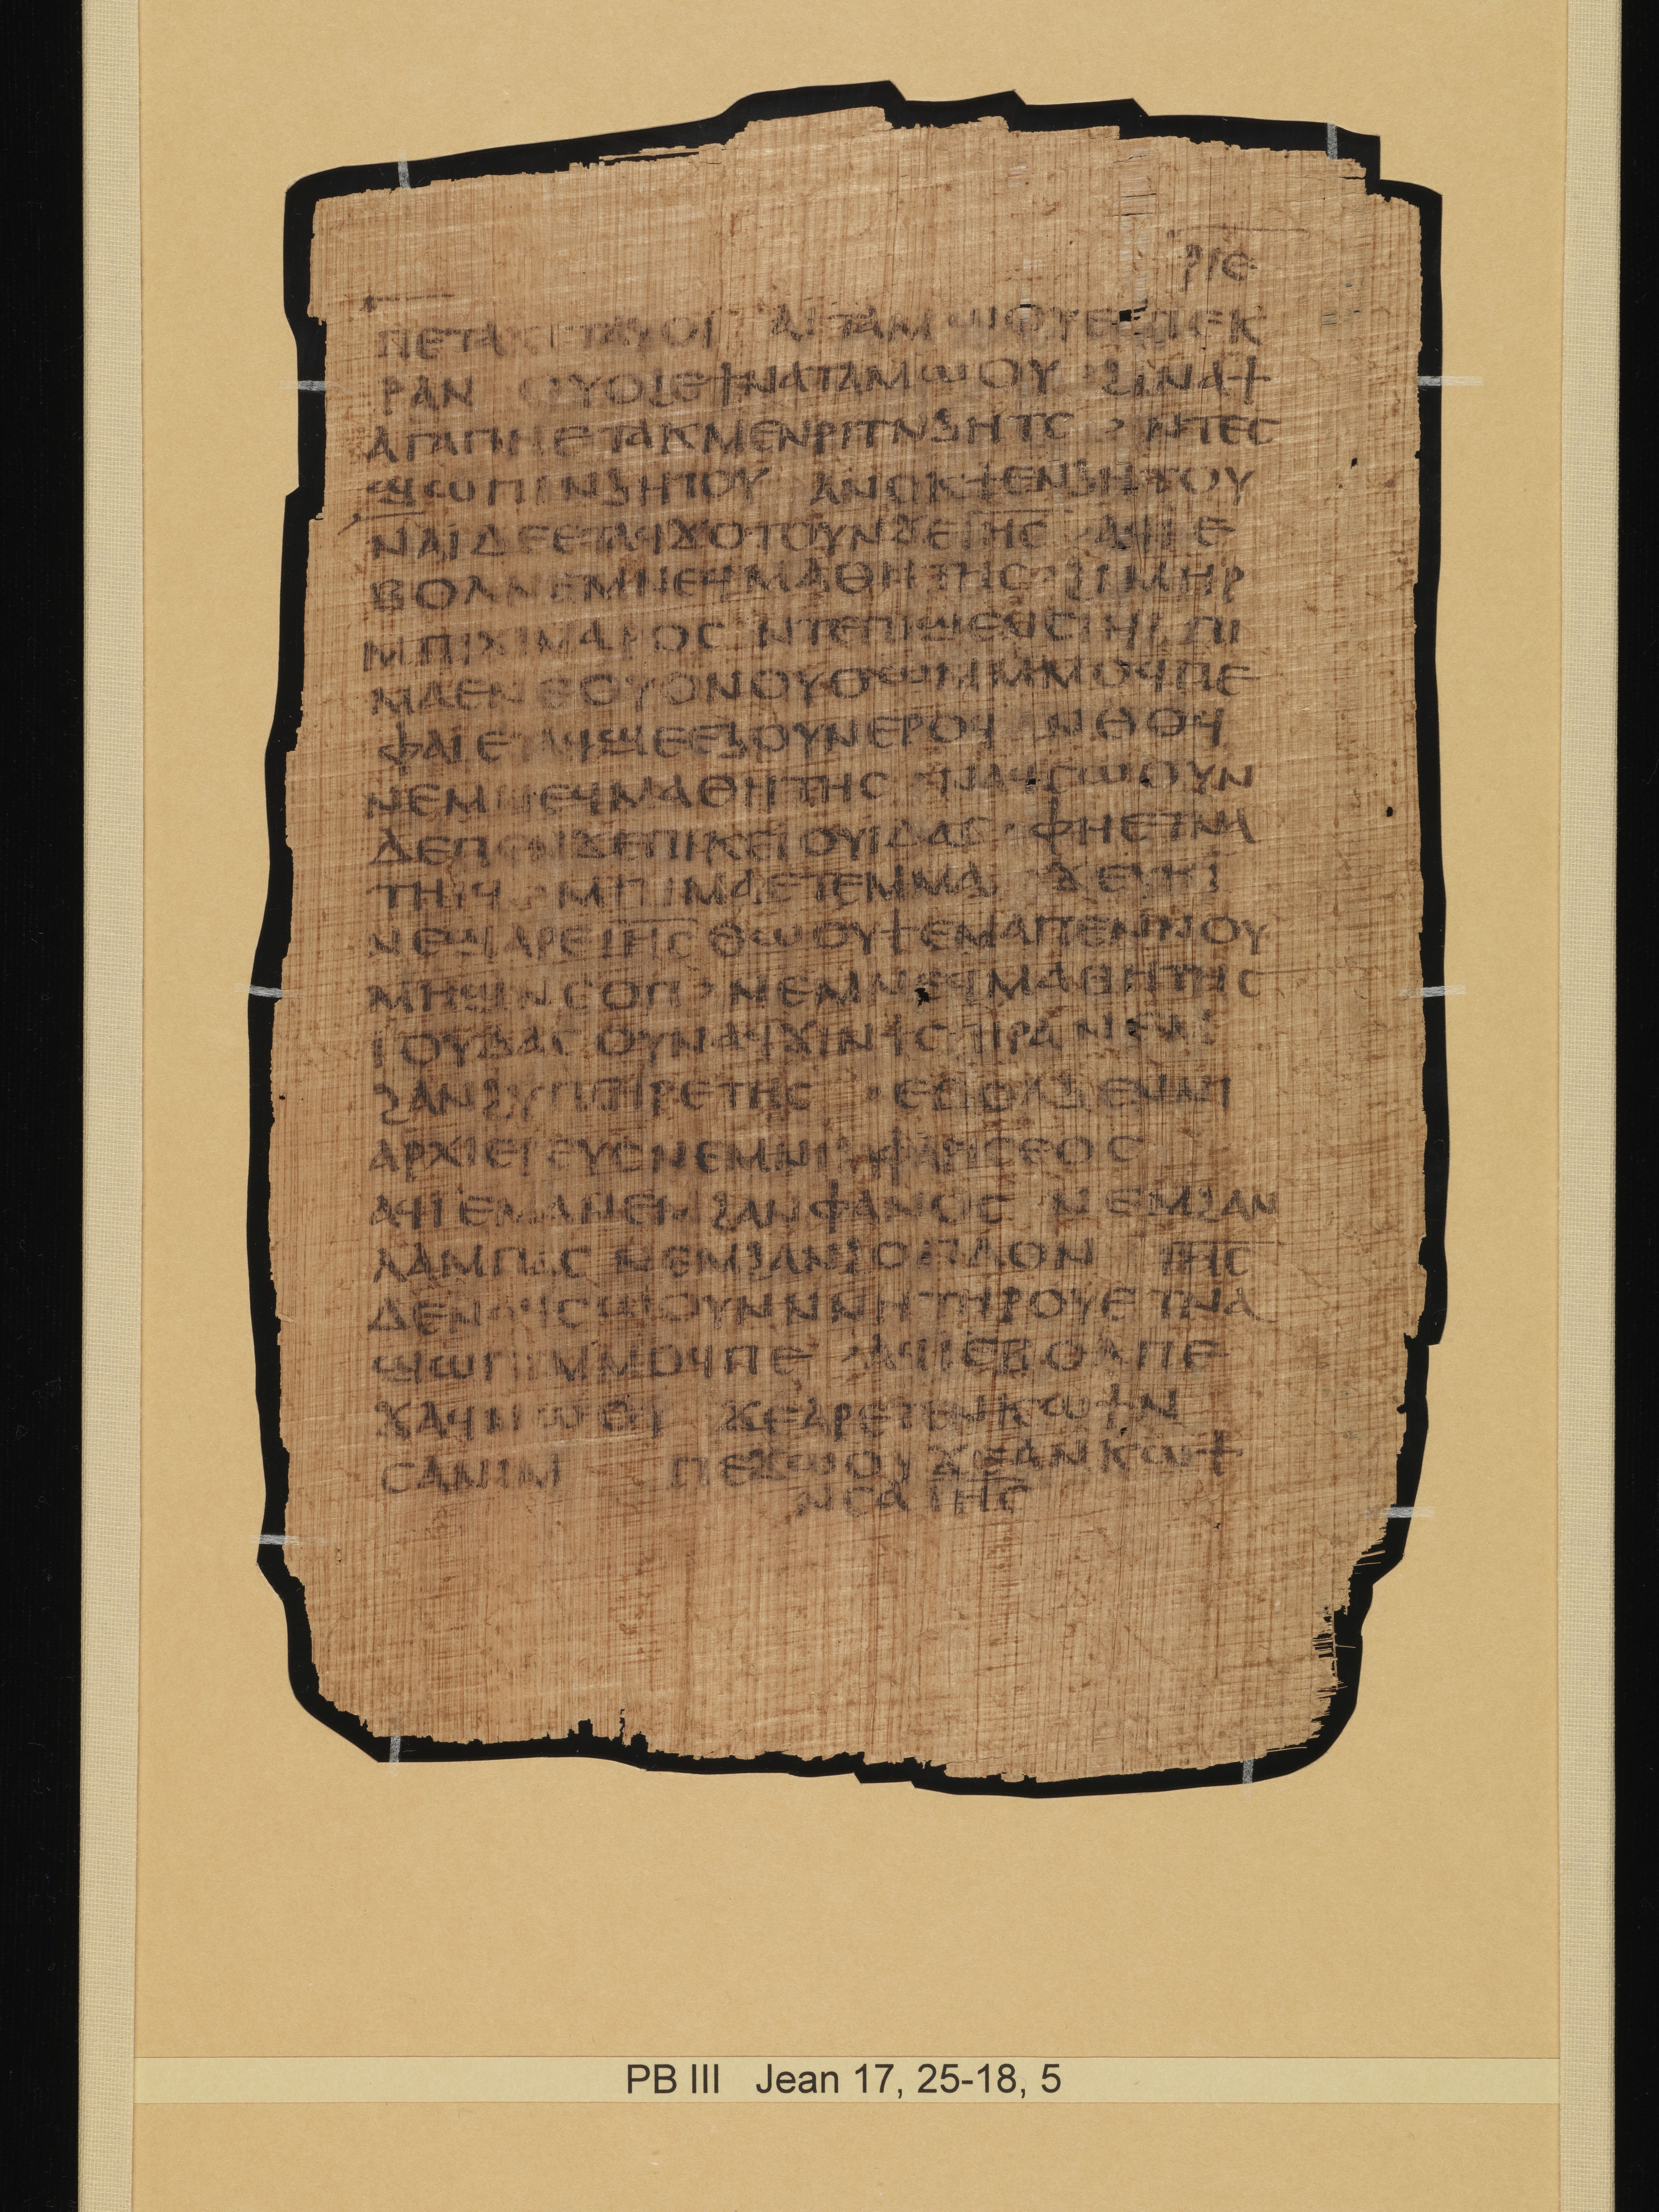 ⲣⲓⲉ
ⲡⲉⲧⲁⲕⲧⲁⲟⲩⲟⲓ ⲁⲓⲧⲁⲙⲱⲟⲩⲉⲡⲉⲕ
ⲣⲁⲛ ⲟⲩⲟϩⲉϯⲛⲁⲧⲁⲙⲱⲟⲩ ϩⲓⲛⲁϯ
ⲁⲅⲁⲡⲏⲉⲧⲁⲕⲙⲉⲛⲣⲓⲧⲛϧⲏⲧⲥ ⲛⲧⲉⲥ
ϣⲱⲡⲓⲛϧⲏⲧⲟⲩ ⲁⲛⲟⲕϯⲉⲛϧⲏⲧⲟⲩ
ⲛⲁⲓⲇⲉⲉⲧⲁϥϫⲟⲧⲟⲩⲛϫⲉⲓⲏⲥ ⲁϥⲓⲉ
ⲃⲟⲗⲛⲉⲙⲛⲉϥⲙⲁⲑⲏⲧⲏⲥ ϩⲓⲙⲏⲣ
ⲙⲡⲓⲭⲓⲙⲁⲣⲟⲥ ⲛⲧⲉⲡⲓϣⲉⲛⲥⲓϥⲓ ⲡⲓ
ⲙⲁⲉⲛⲉⲟⲩⲟⲛⲟⲩϭⲱⲙⲙⲙⲟϥⲡⲉ
ⲫⲁⲓⲉⲧⲁϥϣⲉⲉϧⲟⲩⲛⲉⲣⲟϥ ⲛⲑⲟϥ
ⲛⲉⲙⲛⲉϥⲙⲁⲑⲏⲧⲏⲥ ⲛⲁϥⲥⲱⲟⲩⲛ
ⲇⲉⲡⲉⲛϫⲉⲡⲓⲕⲉⲓⲟⲩⲓⲇⲁⲥ ⲫⲏⲉⲧⲛⲁ
ⲧⲏⲓϥ ⲙⲡⲓⲙⲁⲉⲧⲉⲙⲙⲁ ϫⲉⲩⲏⲓ
ⲛⲉϣⲁⲣⲉⲓⲏⲥⲑⲱⲟⲩϯⲉⲙⲁⲡⲉⲛⲛⲟⲩ
ⲙⲏϣⲛⲥⲟⲡ ⲛⲉⲙⲛⲉϥⲙⲁⲑⲏⲧⲏⲥ
ⲓⲟⲩⲇⲁⲥⲟⲩⲛⲁϥϭⲓⲛϯⲥⲡⲓⲣⲁⲛⲉⲙ
ϩⲁⲛϩⲩⲡⲏⲣⲉⲧⲏⲥ ⲉⲃⲟⲗϧⲉⲛⲛⲓ
ⲁⲣⲭⲓⲉⲣⲉⲩⲥⲛⲉⲙⲛⲓⲫⲁⲣⲓⲥⲉⲟⲥ
ⲁϥⲓⲉⲙⲁⲛⲉⲙ ϩⲁⲛⲫⲁⲛⲟⲥ ⲛⲉⲙϩⲁⲛ
ⲗⲁⲙⲡⲁⲥⲛⲉⲙϩⲁⲛϩⲟⲡⲗⲟⲛ ⲓⲏⲥ
ⲇⲉⲛⲁϥⲥⲱⲟⲩⲛⲛⲛⲏⲧⲏⲣⲟⲩⲉⲧⲛⲁ
ϣⲱⲡⲓⲙⲙⲟϥⲡⲉ ⲁϥⲓⲉⲃⲟⲗⲡⲉ
ϫⲁϥⲛⲱⲟⲩ ϫⲉⲁⲣⲉⲧⲉⲛⲕⲱϯⲛ
ⲥⲁⲛⲓⲙ ⲡⲉϫⲱⲟⲩϫⲉⲁⲛⲕⲱϯ
ⲛⲥⲁⲓⲏⲥ
PB III Jean 17, 25-18, 5